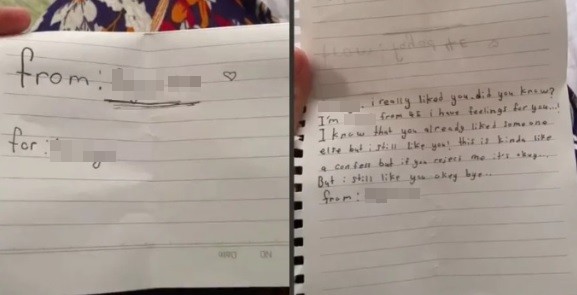 from: ♡
for:
NO Date
from:
i really liked you, did you know?
I'm from 4S i have feelings for you..
I know that you already liked someone
else but i still like you! this is kinda like
a confess but if you reject me it's okay...
But i still like you okey bye..
from: